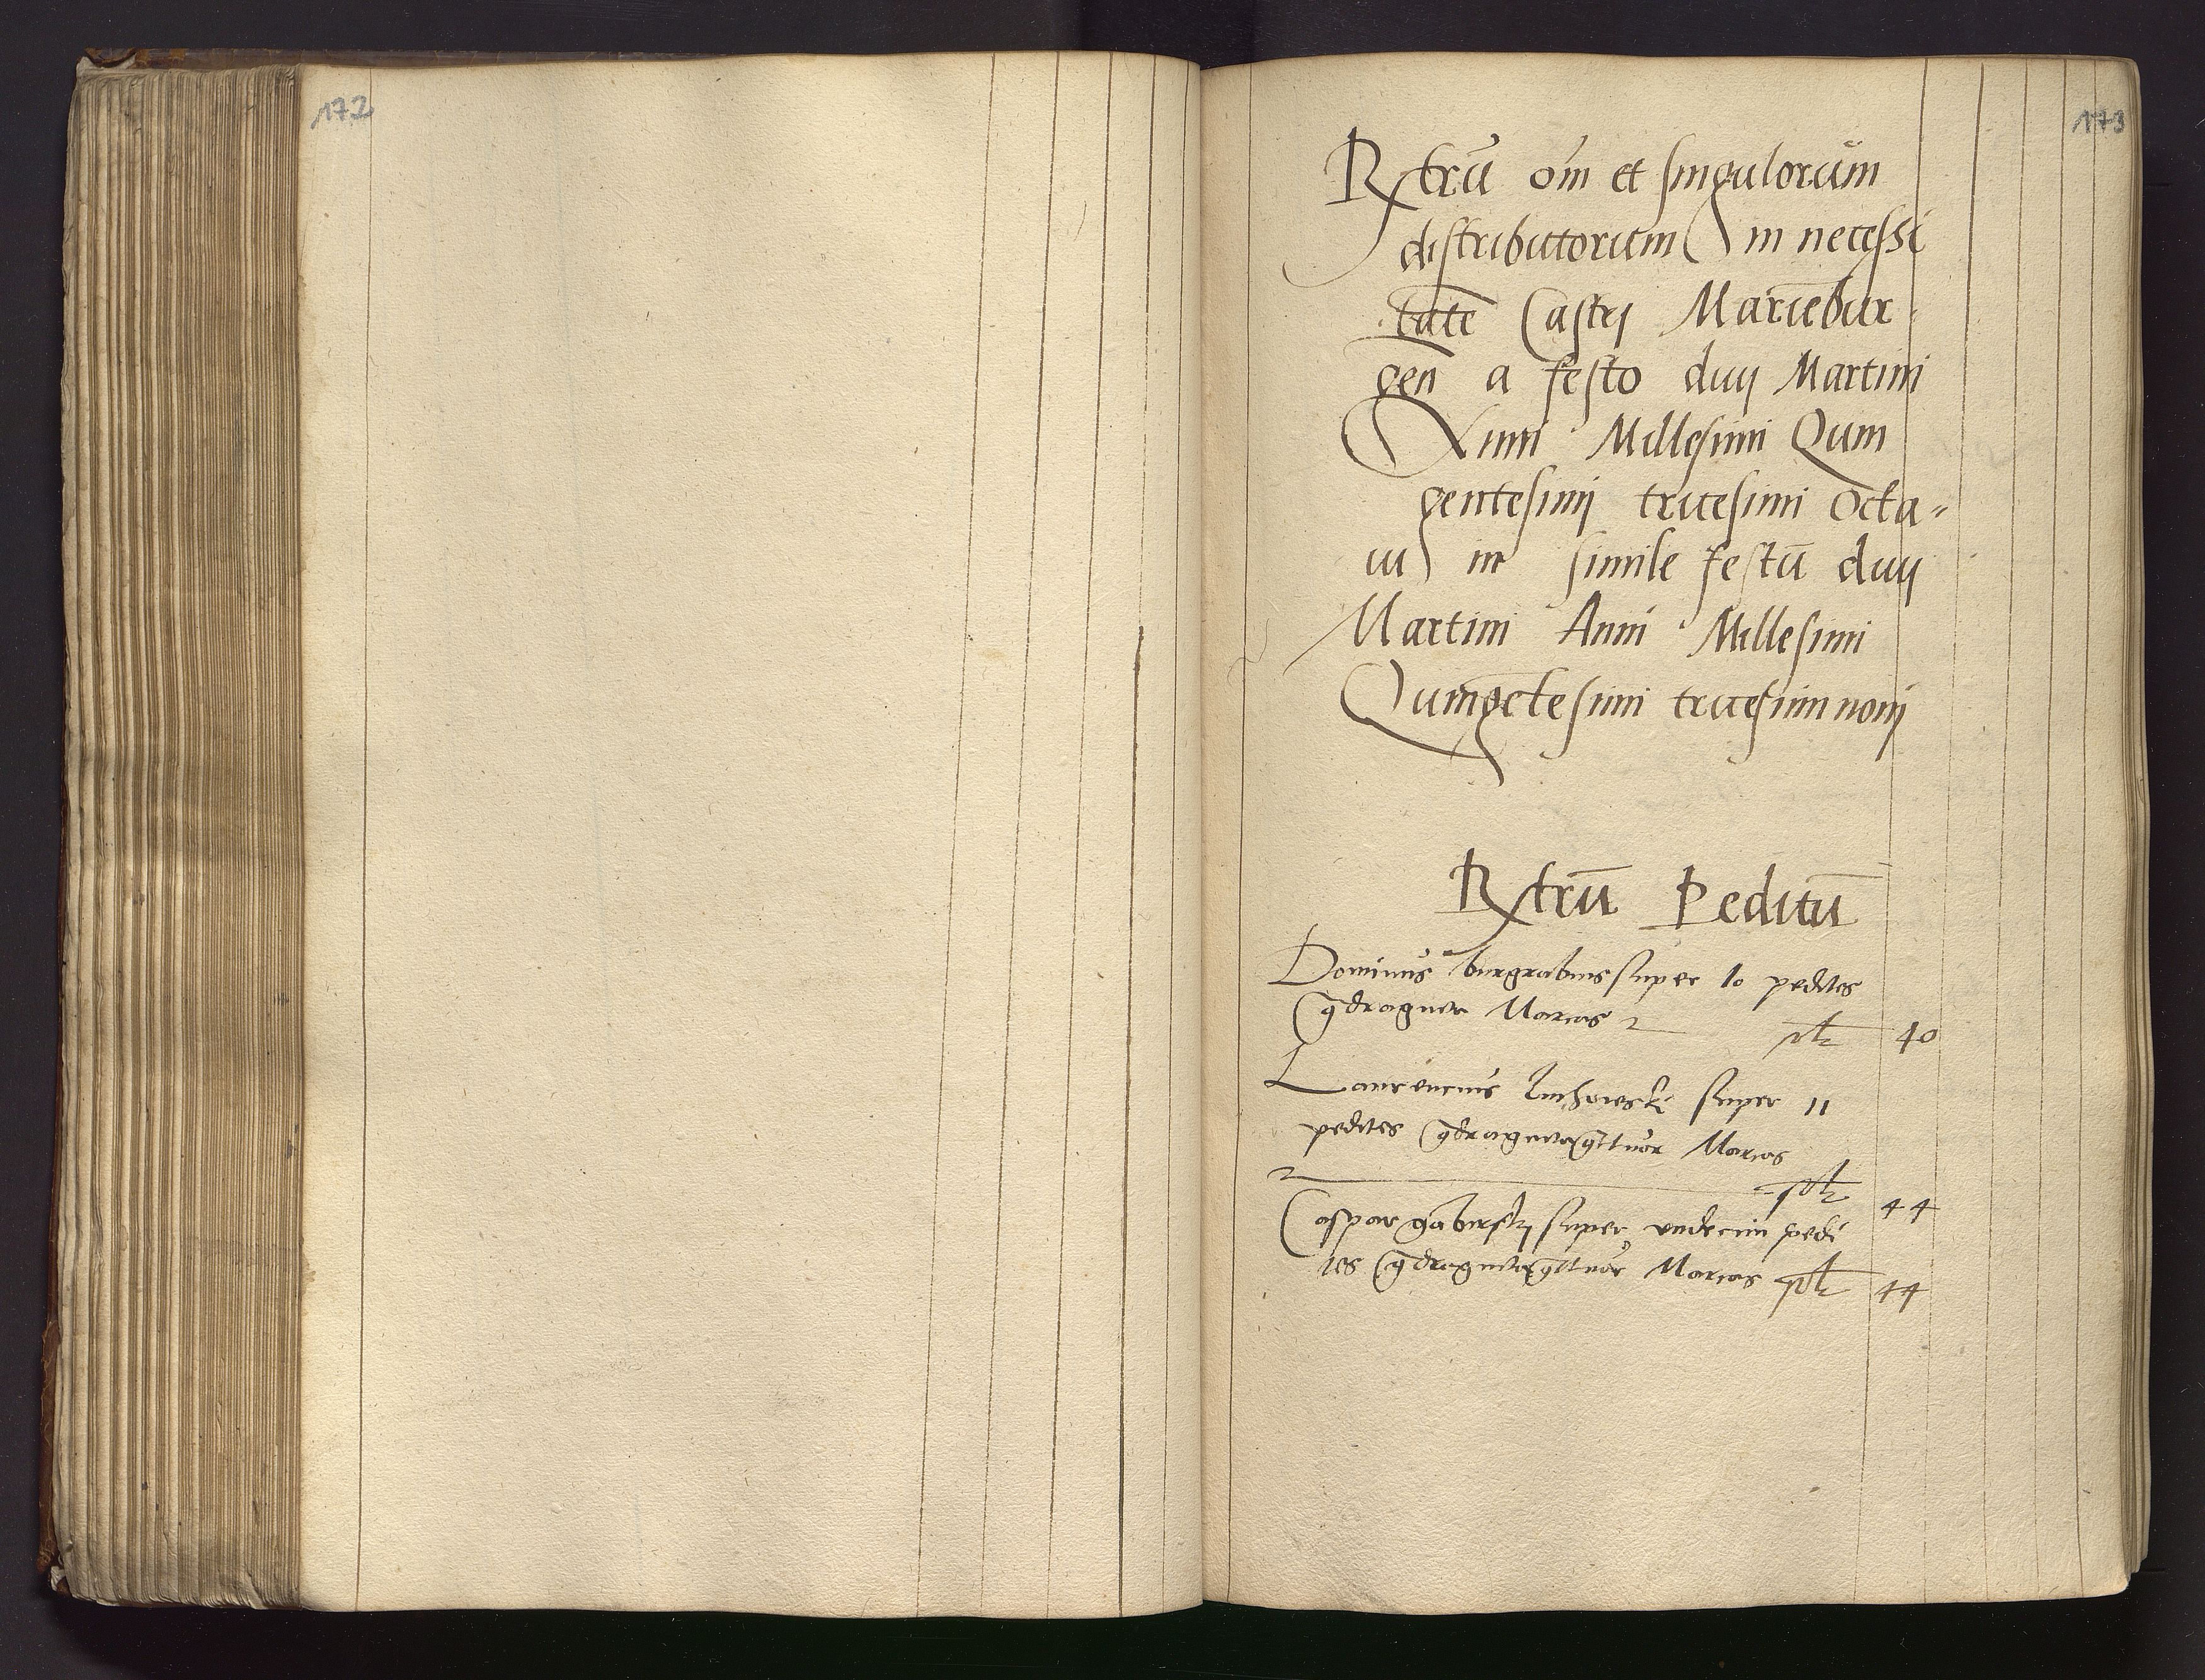 172
173
Rxtrū om̄ et singulorum
distributorum in necessi
tatē Castrj Mariebur
gen̄ a festo diuj Martini
Anni Millesimi Quin
gentesimj tricesimi Octa-
ui in simile festū diuj
Martini Anni Millesimi
Quingētesimi tricesimi nonj
Rxtrū Peditū
Dominus burgrabius super 10 pedites
qdraginta Marcas
40
Laurencius super 11
pedites qdragintaqttuor Marcas
44
Caspar super vndecim pedi
tes qdragintaqttuor Marcas
44